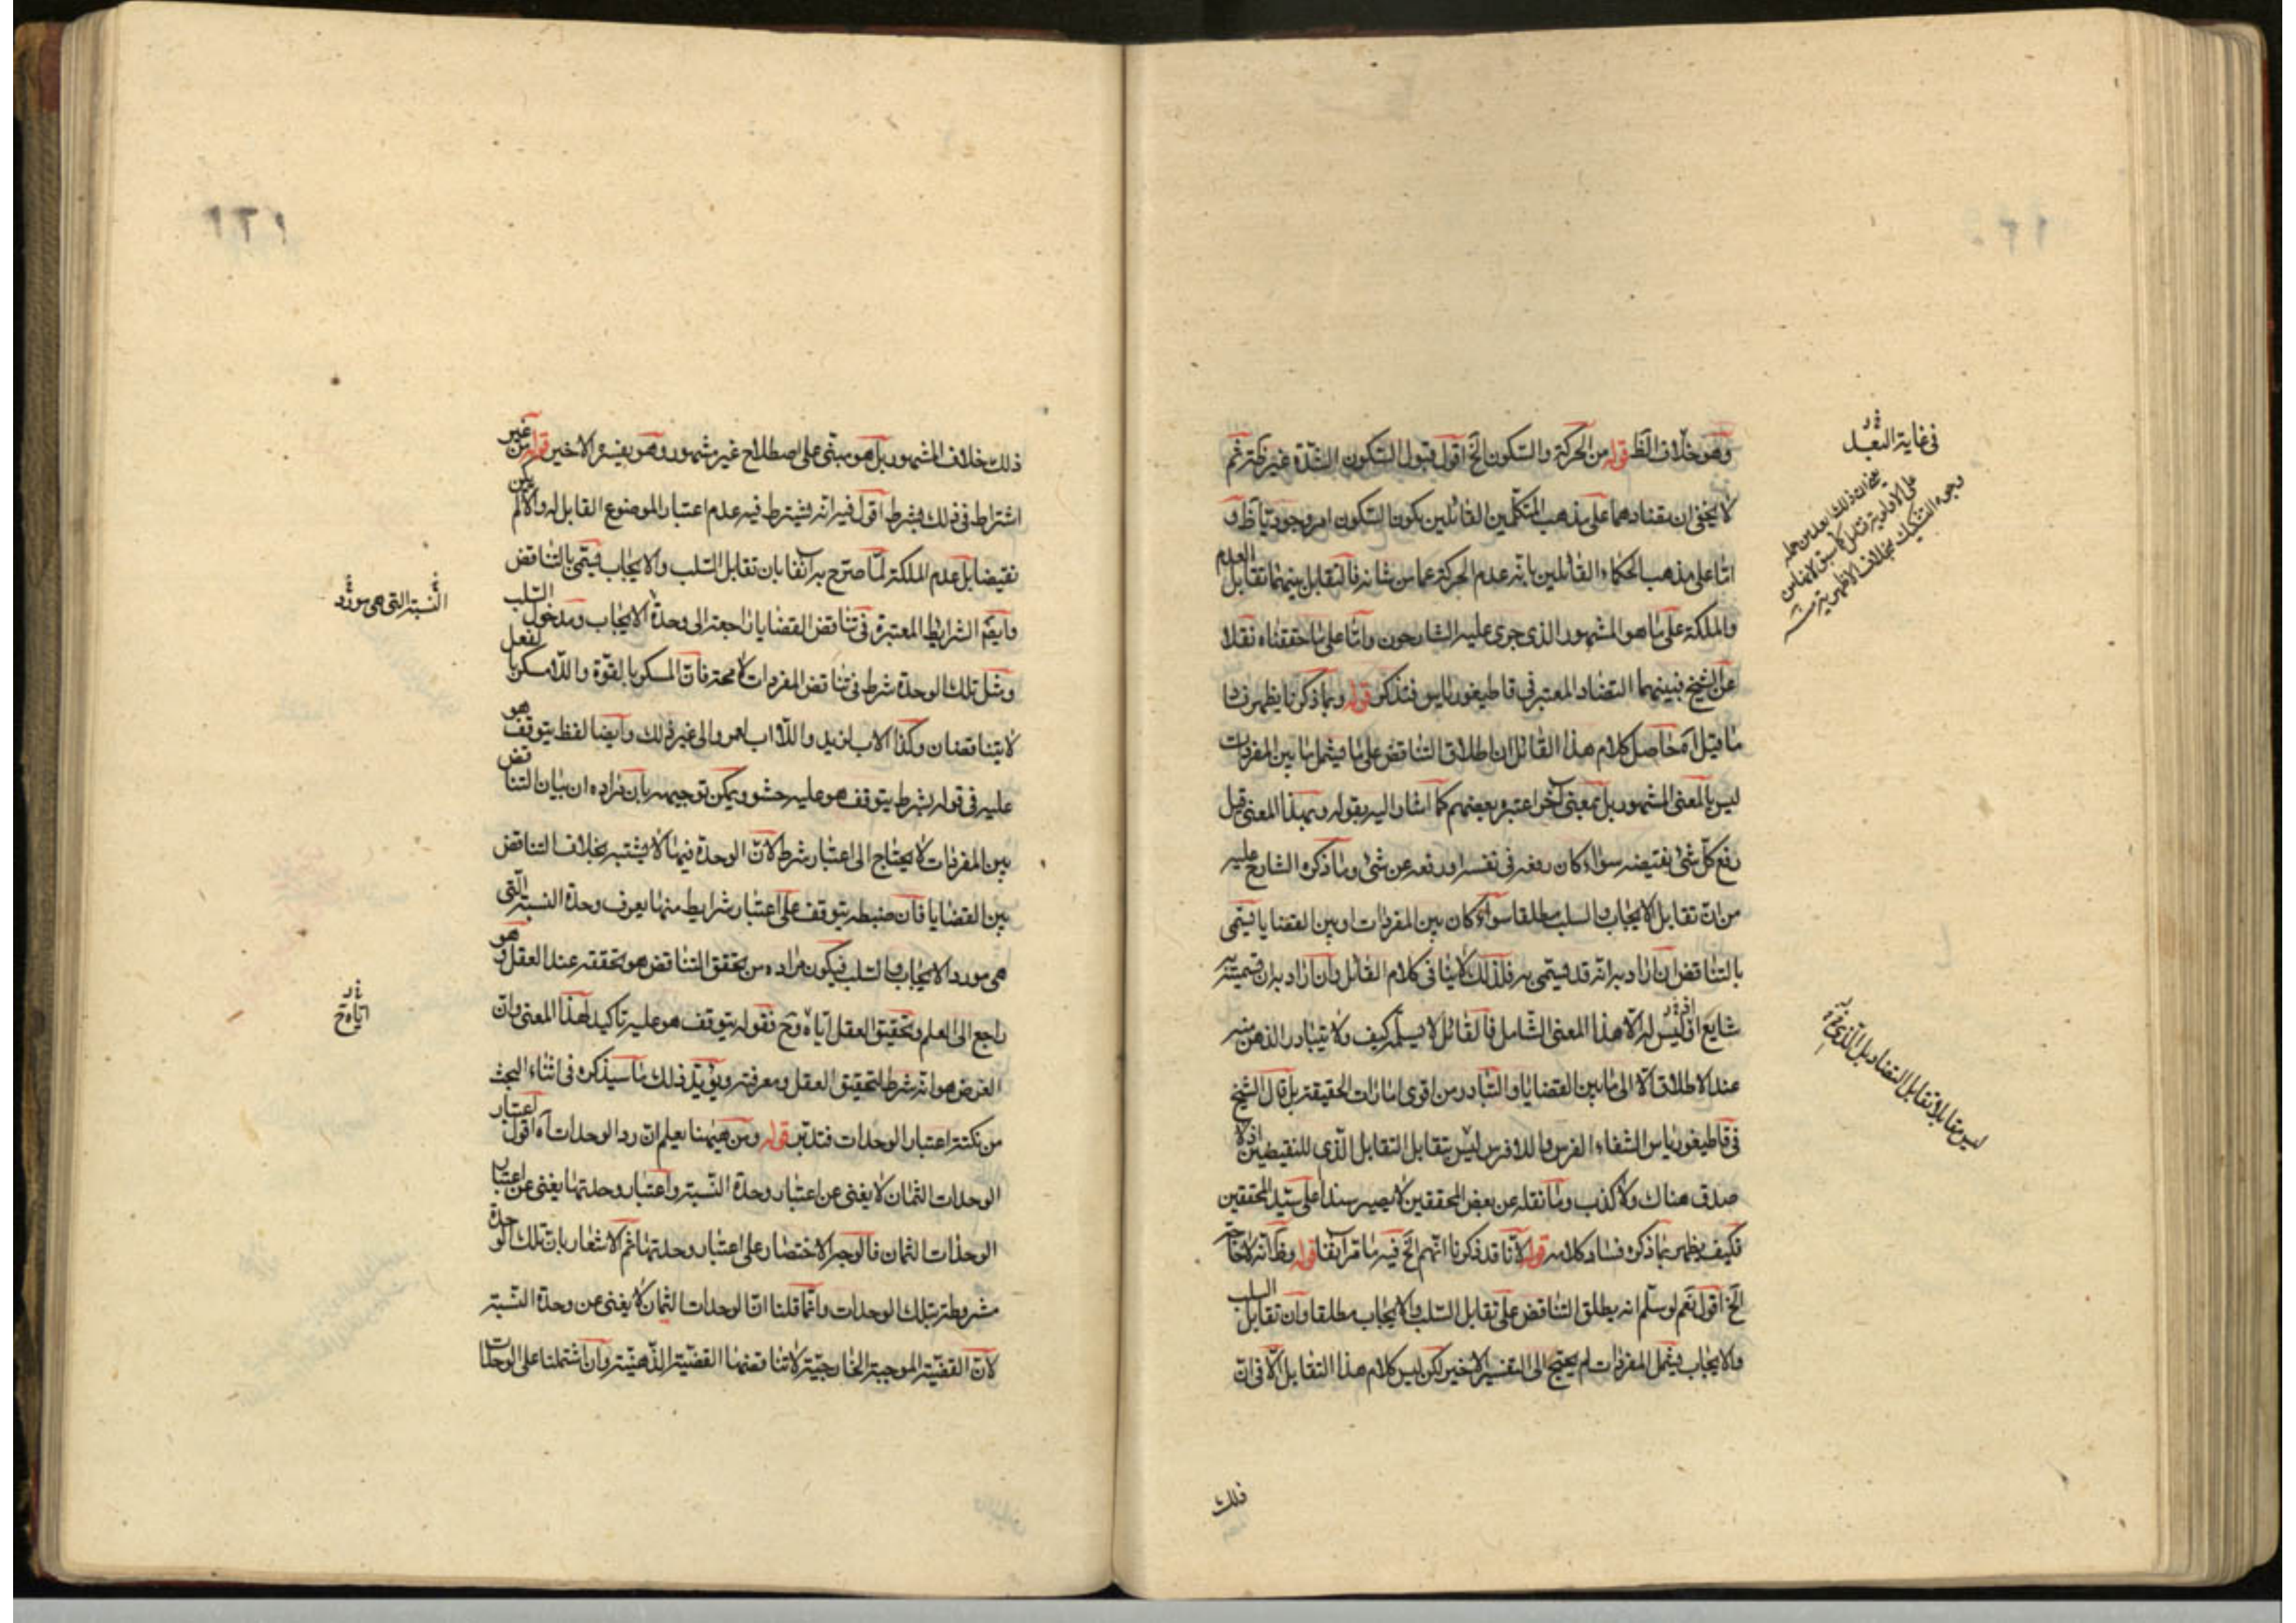 وهو خلاف الظ قوله من الحركة والسكون الخ اقول قبول السكون الشدة غير ظ ثم
لا يخفى ان تضادهما على مذهب المتكلمين القائلين بكون السكون امر وجوديا ظ و
اما على مذهب الحكماء القائلين بانه عدم الحركة عما من شانه فالتقابل بينهما تقابل العدم
والملكة على ما هو المشهور الذى جرى عليه الشارحون واما على ما حققناه نقلا
عن الشيخ فبينهما التضاد المعتبر فى قاطيغورياس فتذكر قوله وبما ذكرنا يظهر فسا
ما قيل اه حاصل كلام هذا القائل ان اطلاق التناقض على ما يشمل ما بين المفردات
ليس بالمعنى المشهور بل بمعنى آخر اعتبره بعضهم كما اشار اليه بقوله وبهذا المعنى قيل
رفع كل شئ نقيضه سواء كان رفعه فى نفسه او رفعه عن شئ وما ذكره الشارح عليه
من ان تقابل الايجاب والسلب مطلقا سواء كان بين المفردات او بين القضايا يسمى
بالتناقض ان اراد به انه قد يسمى به فلذلك لا ينافى كلام القائل وان اراد به ان تسميته به
شايع اذ ليس له الا هذا المعنى الشامل فالقائل لا يسلمه كيف ولا يتبادر الذهن منه
عند الاطلاق الا الى ما بين القضايا والتبادر من اقوى امارات الحقيقة بل قال الشيخ
فى قاطيغورياس الشفاء الفرس واللافرس ليس يتقابل التقابل الذى للنقيضين اذ لا
صدق هناك ولا كذب وما نقله عن بعض المحققين لا يصير سندا على سيد المحققين
فكيف يظهر بما ذكره فساد كلامه قوله لانا قد ذكرنا انهم الخ فيه ما مر آنفا قوله وظ انه لا حاجة
الخ اقول نعم لو سلم انه يطلق التناقض على تقابل السلب والايجاب مطلقا وان تقابل السلب
والايجاب يشمل المفردات لم يحتج الى التفسير الاخير لكن ليس كلام هذا القابل الا فى ان
ذلك
فى غاية البعد
وجوه التشكيك بخلاف الاظهرية
ليس متقابلا تقابل التضاد بل الذى
ذلك خلاف المشهور بل هو مبنى على اصطلاح غير مشهور وهو تفسيره الاخير قوله من غير
اشتراط فى ذلك بشرط اقول فيه انه يشترط فيه عدم اعتبار الموضوع القابل له والا لم يكن
نقيضا بل عدم الملكة لما صرح به آنفا بان تقابل السلب والايجاب يسمى بالتناقض
وايضا الشرايط المعتبرة فى تناقض القضايا راجعة الى وحدة الايجاب ومدخول السلب
ومثل تلك الوحدة شرط فى تناقض المفردات لا محة فان المسكر بالقوة واللامسكر بالفعل
لا يتناقضان وكذا الاب لزيد واللااب لعمرو الى غير ذلك وايضا لفظ يتوقف هو
عليه فى قوله بشرط يتوقف هو عليه حشو ويمكن توجيهه بان مراده ان بيان التناقض
بين المفردات لا يحتاج الى اعتبار شرط لان الوحدة فيها لا يشتبه بخلاف التناقض
بين القضايا فان ضبطه يتوقف على اعتبار شرايط منها يعرف وحدة النسبة التى
هى مورد الايجاب والسلب فيكون مراده من تحقق التناقض هو تحققه عند العقل وهو
راجع الى العلم وتحقيق العقل اياه وح فقوله يتوقف هو عليه تاكيد لهذا المعنى وان
الغرض هو انه شرط لتحقيق العقل ومعرفته ويؤيد ذلك ما سيذكره فى اثناء البحث
من نكتة اعتبار الوحدات فتدبر قوله ومن هيهنا يعلم ان رد الوحدات اه اقول اعتبار
الوحدات الثمان لا يغنى عن اعتبار وحدة النسبة واعتبار وحدتها يغنى عن اعتبار
الوحدات الثمان فالوجه الاختصار على اعتبار وحدتها ثم الاشعار بان تلك الوحدة
مشروطة بتلك الوحدات وانما قلنا ان الوحدات الثمان لا يغنى عن وحدة النسبة
لان القضية الموجبة الخارجية لا تناقضها القضية الذهنية وان اشتملتا على الوحدات
النسبة التى هى مورد
اياه ح